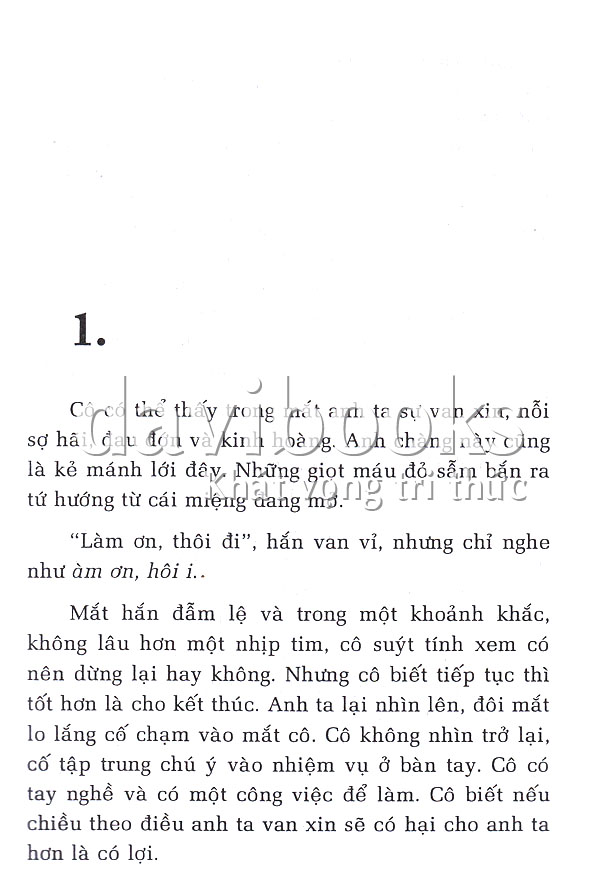 1.
Cô có thể thấy trong mắt anh ta sự van xin, nỗi
sợ hãi, đau đớn và kinh hoàng. Anh chàng này cũng
là kẻ mánh lới đây. Những giọt máu đỏ sẫm bắn ra
tứ hướng từ cái miệng đang mở.
davibooks
khát vọng tri thức
“Làm ơn, thôi đi”, hắn van vỉ, nhưng chỉ nghe
như àm ơn, hôi i..
Mắt hắn đẫm lệ và trong một khoảnh khắc,
không lâu hơn một nhịp tim, cô suýt tính xem có
nên dừng lại hay không. Nhưng cô biết tiếp tục thì
tốt hơn là cho kết thúc. Anh ta lại nhìn lên, đôi mắt
lo lắng cố chạm vào mắt cô. Cô không nhìn trở lại,
cố tập trung chú ý vào nhiệm vụ ở bàn tay. Cô có
tay nghề và có một công việc để làm. Cô biết nếu
chiều theo điều anh ta van xin sẽ có hại cho anh ta
hơn là có lợi.